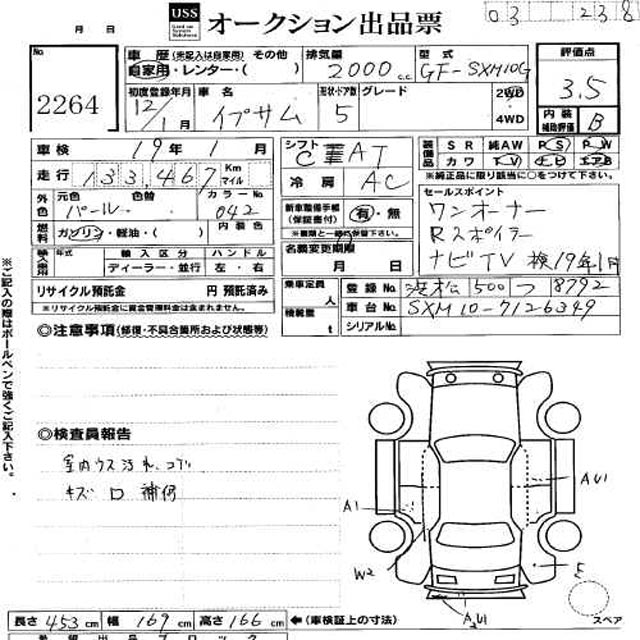 03 238
月 日
USS オークション出品票
No. 2264
車歴 (未記入は自家用) その他
自家用・レンター・( )
排気量 2000 c.c.
型式 GF-SXM10G
評価点 3.5
初度登録年月 12/1月
車名 イプサム
形状・ドア数 5
グレード
2WD
4WD
内装補助評価 B
車検 19年 1月
シフト AT
装備品 SR 純AW PS PW
カワ TV ナビ エアB
※純正品に限り該当に○をつけて下さい。
走行 133,467 Km マイル
冷房 AC
外色 元色 パール 色替 カラーNo. 042
新車整備手帳(保証書付) 有・無
※書類と一緒に保管下さい
セールスポイント
ワンオーナー
Rスポイラー
ナビTV 検19年1月
燃料 ガソリン・軽油・( ) 内装色
名義変更期限 月 日
輸入車用 年式 輸入区分 ハンドル
ディーラー・並行 左・右
リサイクル預託金 円 預託済み
※リサイクル預託金に資金管理料金は含まれません。
乗車定員 人
積載量 t
登録No. 浜松 500 つ 8792
車台No. SXM10-7126349
シリアルNo.
◎注意事項 (修復・不具合箇所および状態等)
※ご記入の際はボールペンで強くご記入下さい。
◎検査員報告
室内ウス汚れ、コゲ
キズ
A1
AU1
W2
E
A2U1
スペア
長さ 453cm 幅 169cm 高さ 166cm ←(車検証上の寸法)